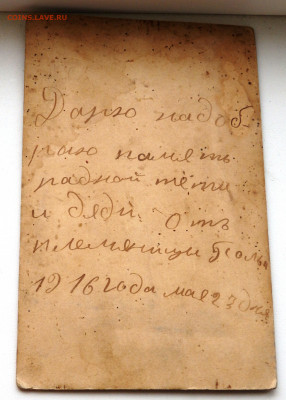 COINS.LAVE.RU
Дарю надоб
рыю память
радной тёти
и дяди. Отъ
племяници
1916 года мая 23 дня